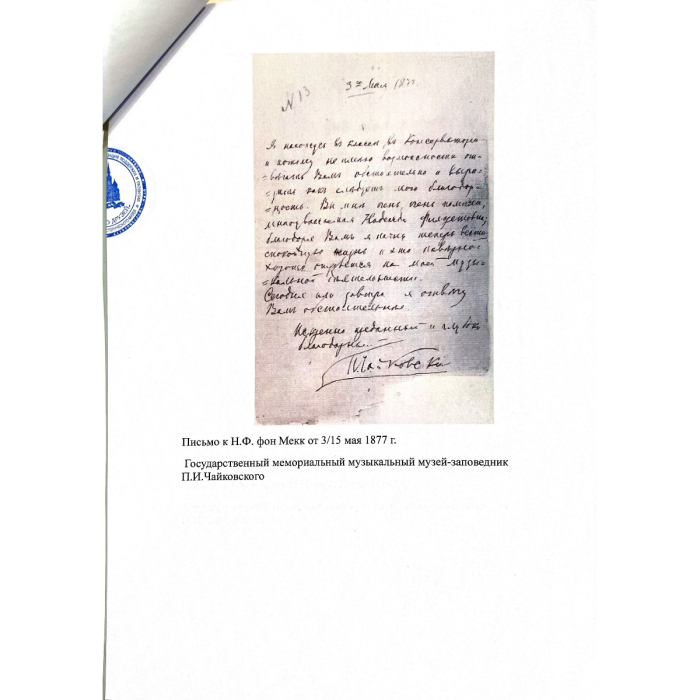 № 13
3го Мая 1877
Я нахожусь в классѣ въ Консерваторіи
и потому не имѣю возможности от-
вѣтить Вамъ обстоятельно и выра-
=зить какъ слѣдуетъ мою благодар-
=ность. Вы мнѣ очень, очень помогли,
многоуважаемая Надежда Филаретовна,
благодаря Вамъ я начну теперь вести
спокойную жизнь и это навѣрное
хорошо отзовется на моей музы-
=кальной дѣятельности.
Сегодня или завтра я опишу
Вамъ обстоятельно.
Искренно преданный и глубоко
благодарный
П. Чайковский
Письмо к Н.Ф. фон Мекк от 3/15 мая 1877 г.
Государственный мемориальный музыкальный музей-заповедник
П.И.Чайковского